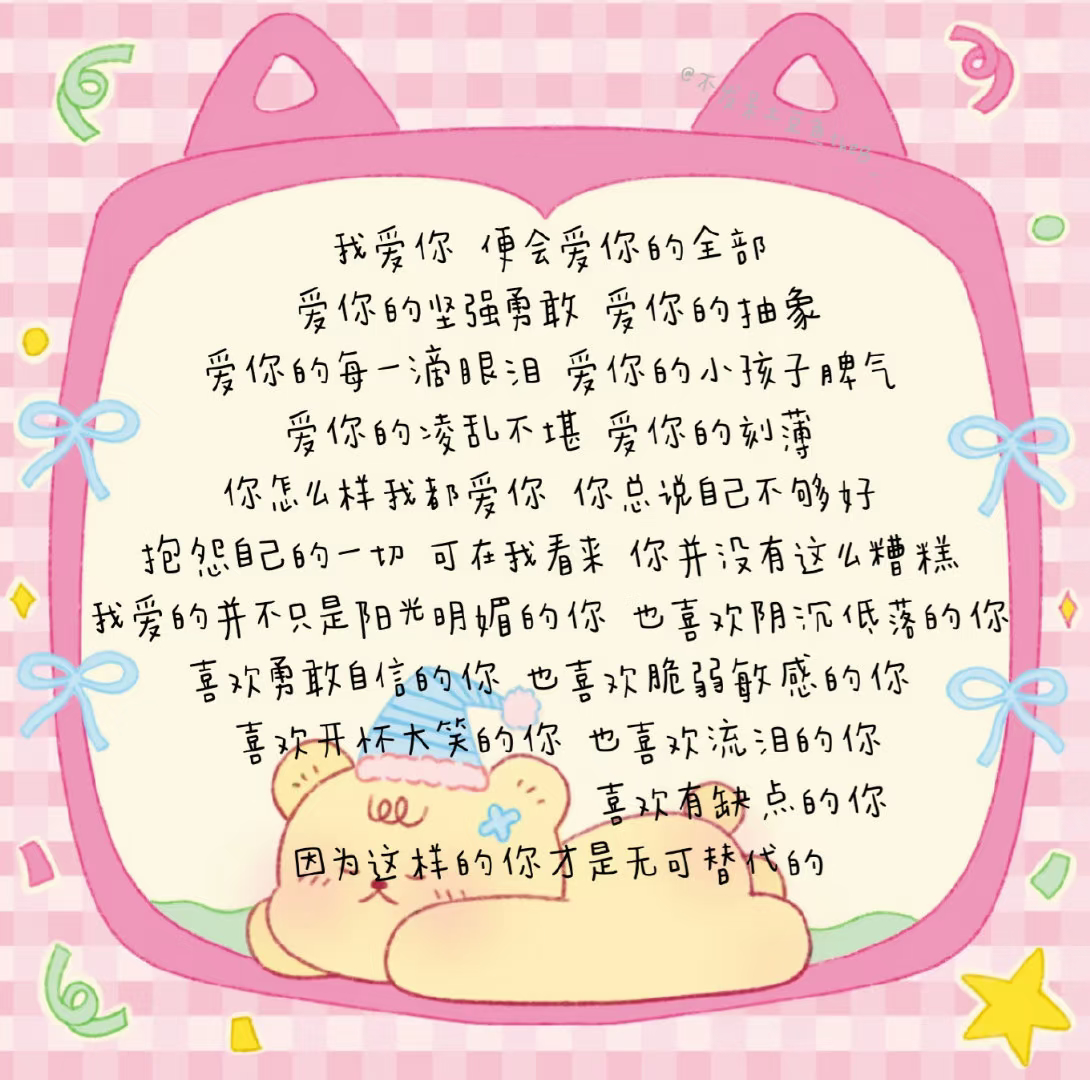 我爱你 便会爱你的全部
爱你的坚强勇敢 爱你的抽象
爱你的每一滴眼泪 爱你的小孩子脾气
爱你的凌乱不堪 爱你的刻薄
你怎么样我都爱你 你总说自己不够好
抱怨自己的一切 可在我看来 你并没有这么糟糕
我爱的并不只是阳光明媚的你 也喜欢阴沉低落的你
喜欢勇敢自信的你 也喜欢脆弱敏感的你
喜欢开怀大笑的你 也喜欢流泪的你
喜欢有缺点的你
因为这样的你才是无可替代的